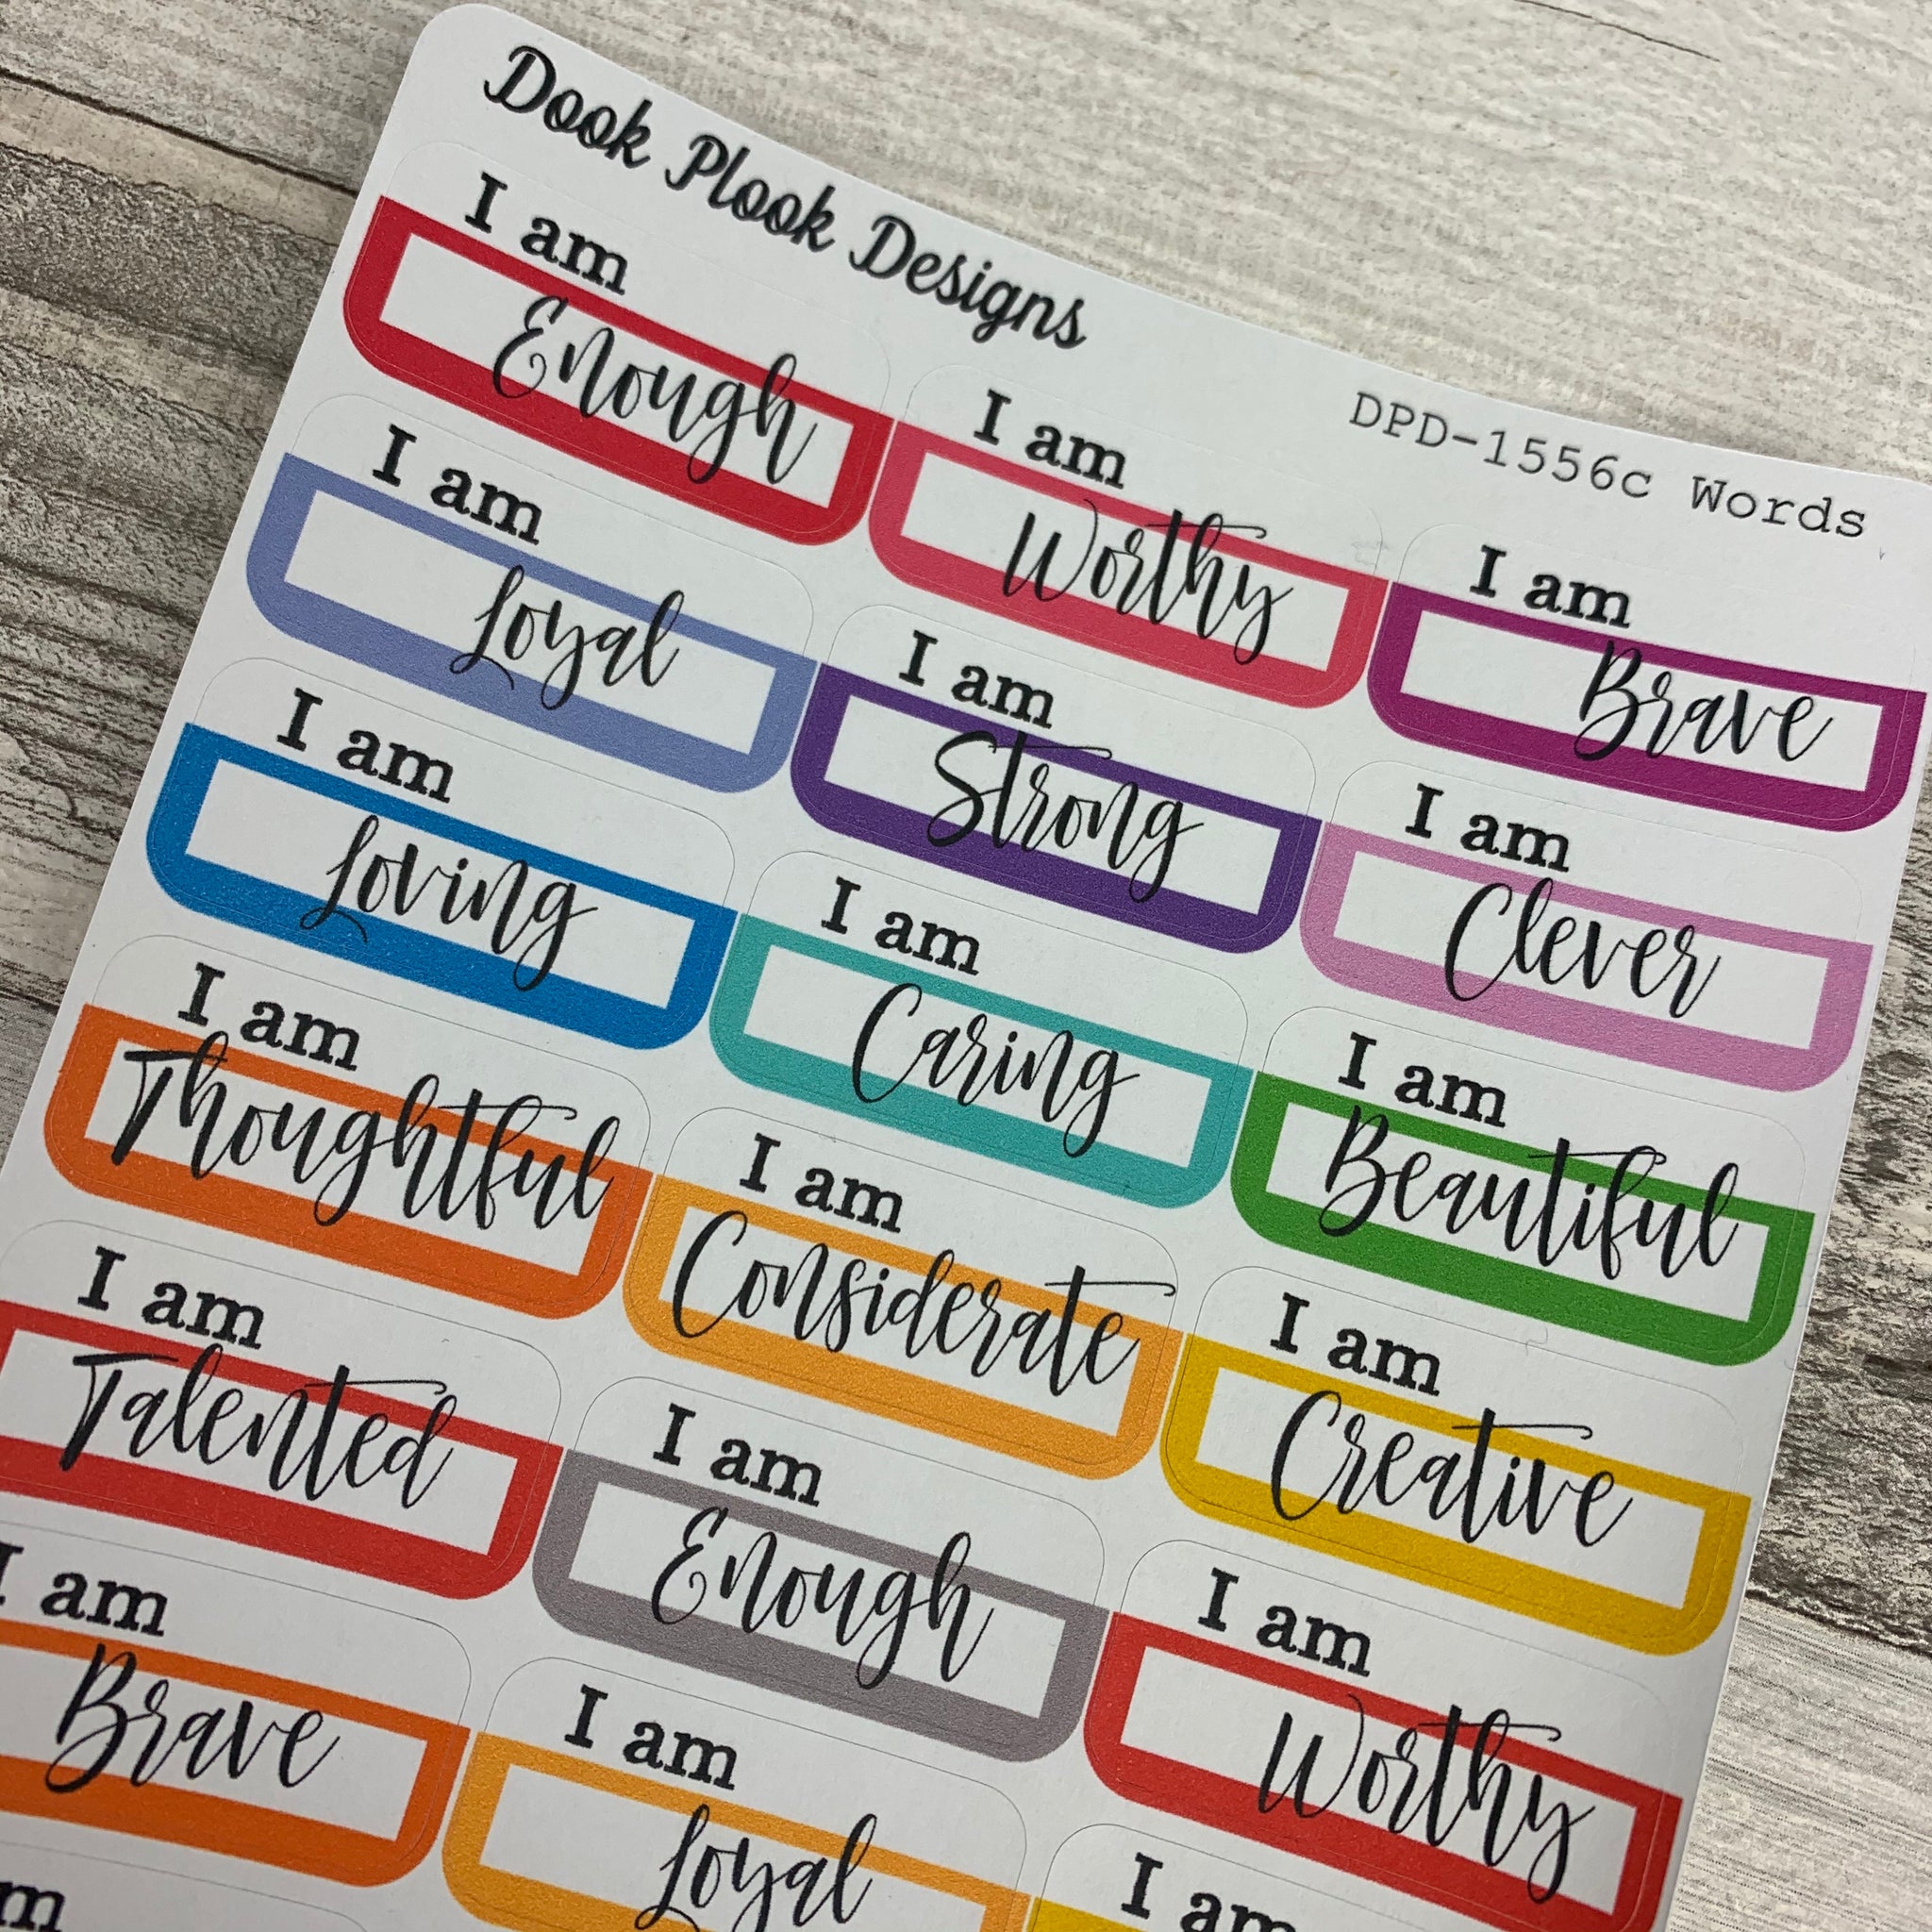 Dook Plook Designs
DPD-1556c Words
I am
Enough
I am
Worthy
I am
Brave
I am
Loyal
I am
Strong
I am
Clever
I am
Loving
I am
Caring
I am
Beautiful
I am
Thoughtful
I am
Considerate
I am
Creative
I am
Talented
I am
Enough
I am
Worthy
I am
Brave
I am
Loyal
I am